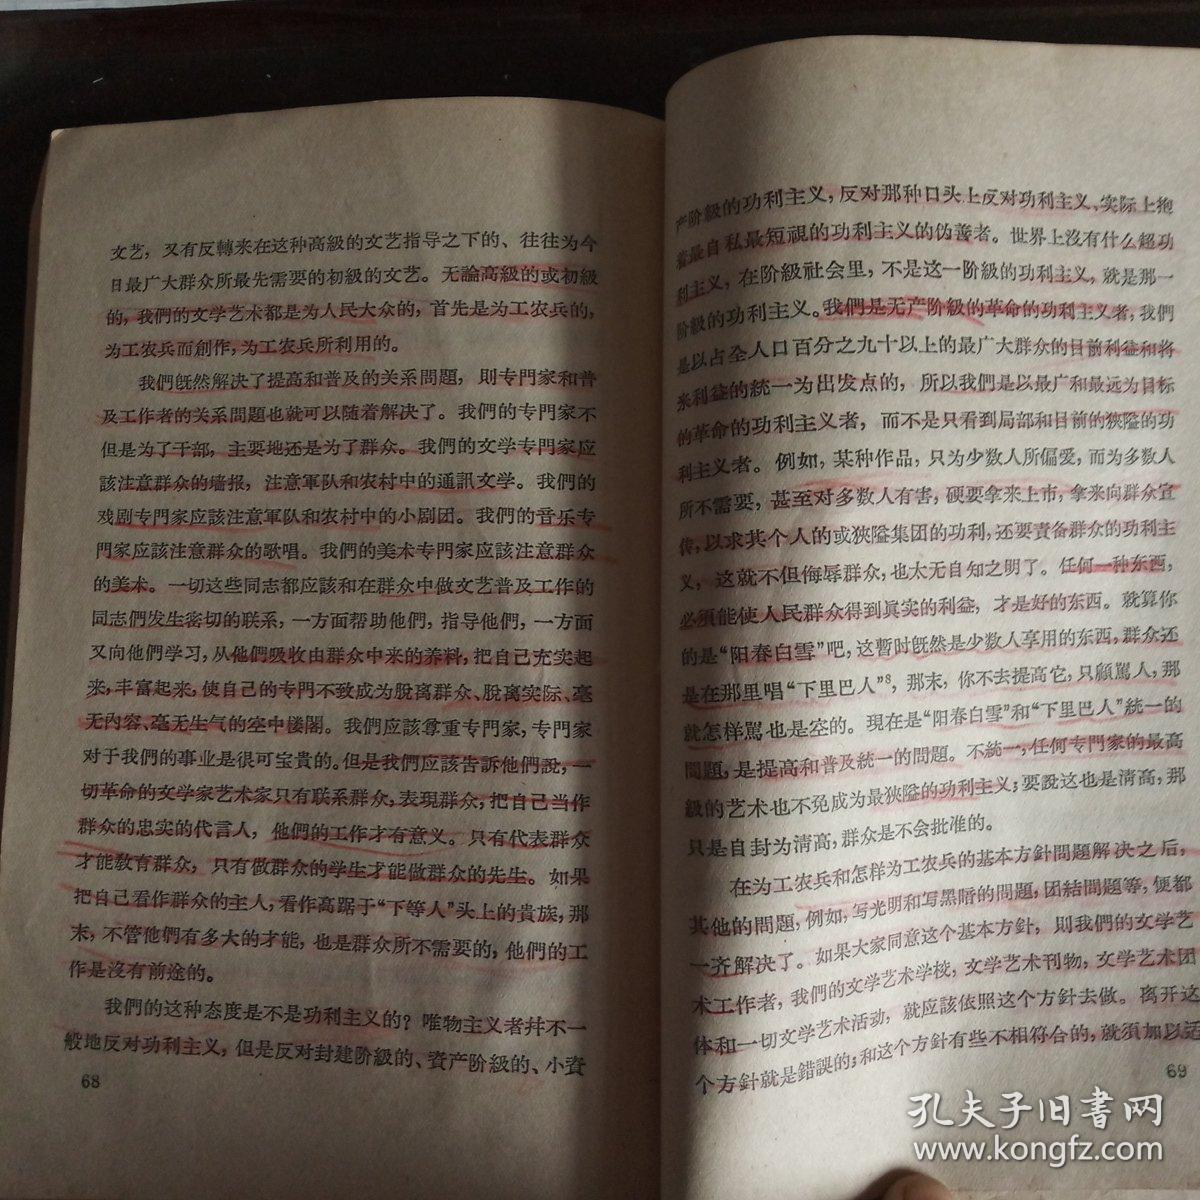 文艺，又有反轉来在这种高級的文艺指导之下的、往往为今
日最广大群众所最先需要的初級的文艺。无論高級的或初級
的，我們的文学艺术都是为人民大众的，首先是为工农兵的，
为工农兵而創作，为工农兵所利用的。
我們旣然解决了提高和普及的关系問題，則专門家和普
及工作者的关系問題也就可以随着解决了。我們的专門家不
但是为了干部，主要地还是为了群众。我們的文学专門家应
該注意群众的墙报，注意軍队和农村中的通訊文学。我們的
戏剧专門家应該注意軍队和农村中的小剧团。我們的音乐专
門家应該注意群众的歌唱。我們的美术专門家应該注意群众
的美术。一切这些同志都应該和在群众中做文艺普及工作的
同志們发生密切的联系，一方面帮助他們，指导他們，一方面
又向他們学习，从他們吸收由群众中来的养料，把自己充实起
来，丰富起来，使自己的专門不致成为脫离群众、脫离实际、毫
无內容、毫无生气的空中楼閣。我們应該尊重专門家，专門家
对于我們的事业是很可宝貴的。但是我們应該告訴他們說，一
切革命的文学家艺术家只有联系群众，表現群众，把自己当作
群众的忠实的代言人，他們的工作才有意义。只有代表群众
才能敎育群众，只有做群众的学生才能做群众的先生。如果
把自己看作群众的主人，看作高踞于“下等人”头上的貴族，那
末，不管他們有多大的才能，也是群众所不需要的，他們的工
作是沒有前途的。
我們的这种态度是不是功利主义的？唯物主义者并不一
般地反对功利主义，但是反对封建阶級的、資产阶級的、小資
68
产阶級的功利主义，反对那种口头上反对功利主义、实际上抱
着最自私最短視的功利主义的伪善者。世界上沒有什么超功
利主义，在阶級社会里，不是这一阶級的功利主义，就是那一
阶級的功利主义。我們是无产阶級的革命的功利主义者，我們
是以占全人口百分之九十以上的最广大群众的目前利益和将
来利益的統一为出发点的，所以我們是以最广和最远为目标
的革命的功利主义者，而不是只看到局部和目前的狹隘的功
利主义者。例如，某种作品，只为少数人所偏爱，而为多数人
所不需要，甚至对多数人有害，硬要拿来上市，拿来向群众宣
传，以求其个人的或狹隘集团的功利，还要責备群众的功利主
义，这就不但侮辱群众，也太无自知之明了。任何一种东西，
必須能使人民群众得到眞实的利益，才是好的东西。就算你
的是“阳春白雪”吧，这暫时旣然是少数人享用的东西，群众还
是在那里唱“下里巴人”⁸，那末，你不去提高它，只顧駡人，那
就怎样駡也是空的。現在是“阳春白雪”和“下里巴人”統一的
問題，是提高和普及統一的問題。不統一，任何专門家的最高
級的艺术也不免成为最狹隘的功利主义；要說这也是清高，那
只是自封为清高，群众是不会批准的。
在为工农兵和怎样为工农兵的基本方針問題解决之后，
其他的問題，例如，写光明和写黑暗的問題，团結問題等，便都
一齐解决了。如果大家同意这个基本方針，則我們的文学艺
术工作者，我們的文学艺术学校，文学艺术刊物，文学艺术团
体和一切文学艺术活动，就应該依照这个方針去做。离开这
个方針就是錯誤的；和这个方針有些不相符合的，就須加以适
69
孔夫子旧书网
www.kongfz.com